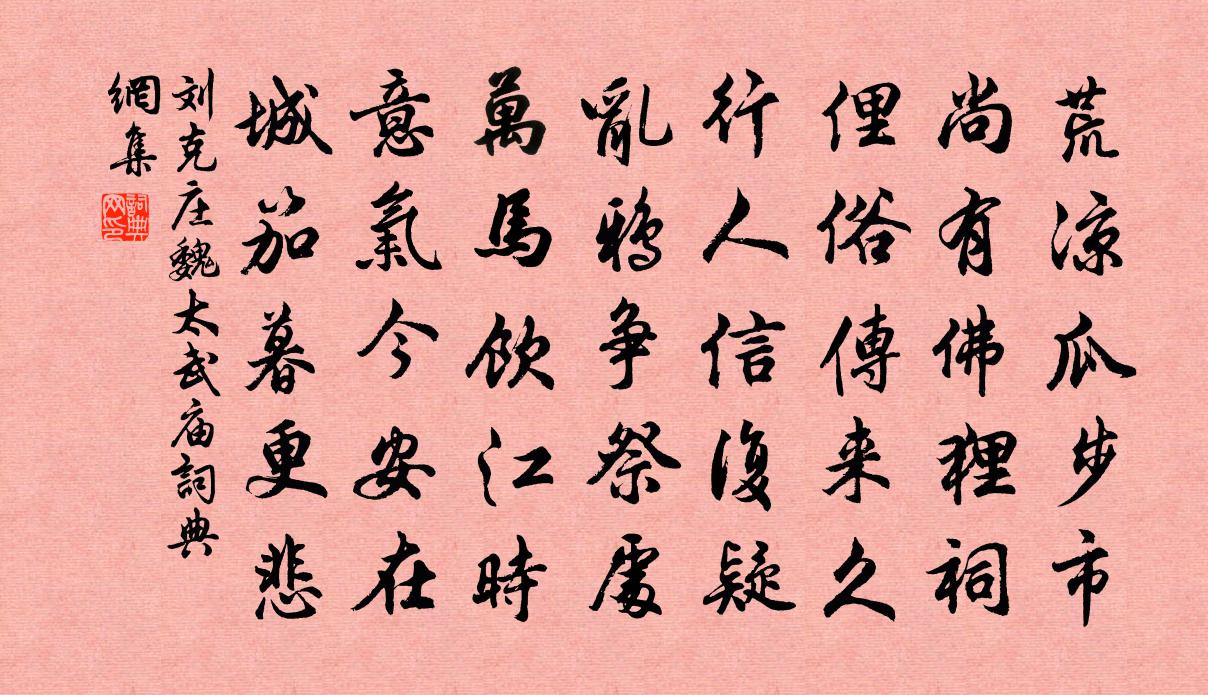 荒涼瓜步市
尚有佛狸祠
俚俗傳来久
行人信復疑
亂鴉争祭處
萬馬飲江時
意氣今安在
城笳暮更悲
刘克庄魏太武庙詞典
網集
詞典網印